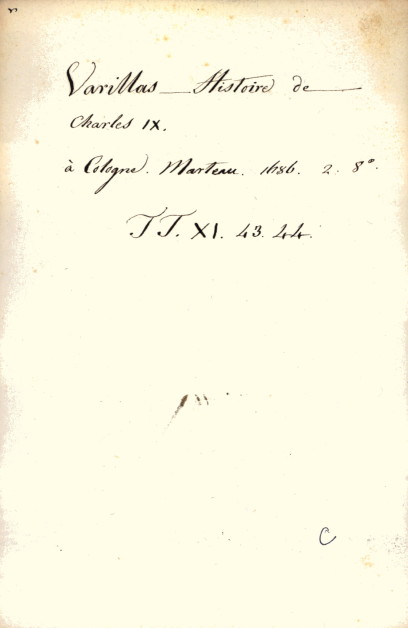 Varillas — Histoire de —
Charles IX.
à Cologne. Marteau. 1686. 2. 8°.
TT. XI. 43. 44.
C